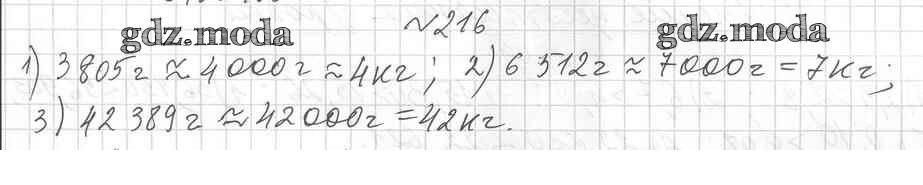 №216
gdz.moda gdz.moda
1) 3 805г ≈ 4 000г ≈ 4кг; 2) 6 512г ≈ 7000г = 7кг;
3) 42 389г ≈ 42 000г = 42кг.